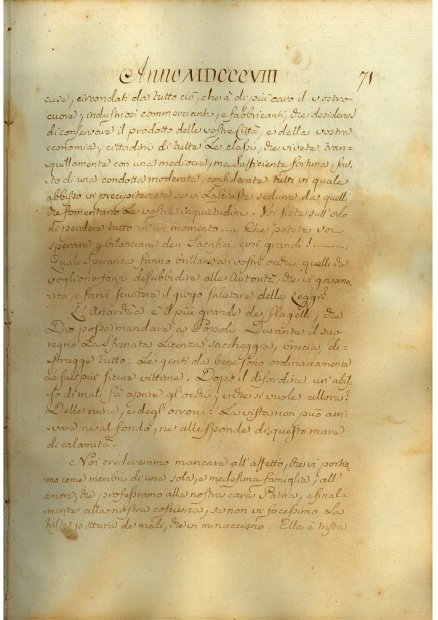 Anno MDCCCVIII 71
case, circondati da tutto ciò, che à di più caro il vostro
cuore, industriosi commercianti, e fabbricanti, che desiderate
di conservare il prodotto delle vostre Città, e della vostra
economia, cittadini di tutte le classi, che vivete tran-
quillamente con una mediocre, ma sufficiente fortuna, frut-
to di una condotta moderata, considerate tutti in quale
abbisso vi precipitereste se vi lasciaste sedurre da quelli,
che fomentano le vostre inquietudini. Voi siete sull'orlo
di perdere tutto in un momento .... Che potete voi
sperare, che bilanciare de' Sacrifici così grandi! ........
Quale speranza fanno brillare ai vostri occhi quelli che
vogliono farvi disubbidire alle Autorità, che vi governa-
no, e farvi scuotere il giogo salutare delle Leggi?
L'Anarchia è il più grande de' flagelli, che
Dio possa mandare a' Popoli. Durante il suo
regno la sfrenata licenza saccheggia, brucia, di-
strugge tutto: Le genti da bene sono ordinariamente
le sue più sicure vittime. Dopo il disordine un abis-
so di mali fà aprire gli occhi, e che si vuole allora?
Delle ruine, e degli orrori: La vista non può arri-
vare nè al fondo, nè alle sponde di questo mare
di calamità.
Noi crederemmo mancare all'affetto, che vi portia-
mo come membri di una sola, e medesima famiglia, all'
amore, che professiamo alla nostra cara Patria, e final-
mente alla nostra coscienza, se non vi facessimo la
pittura de' mali, che vi minacciano: Ella è trista